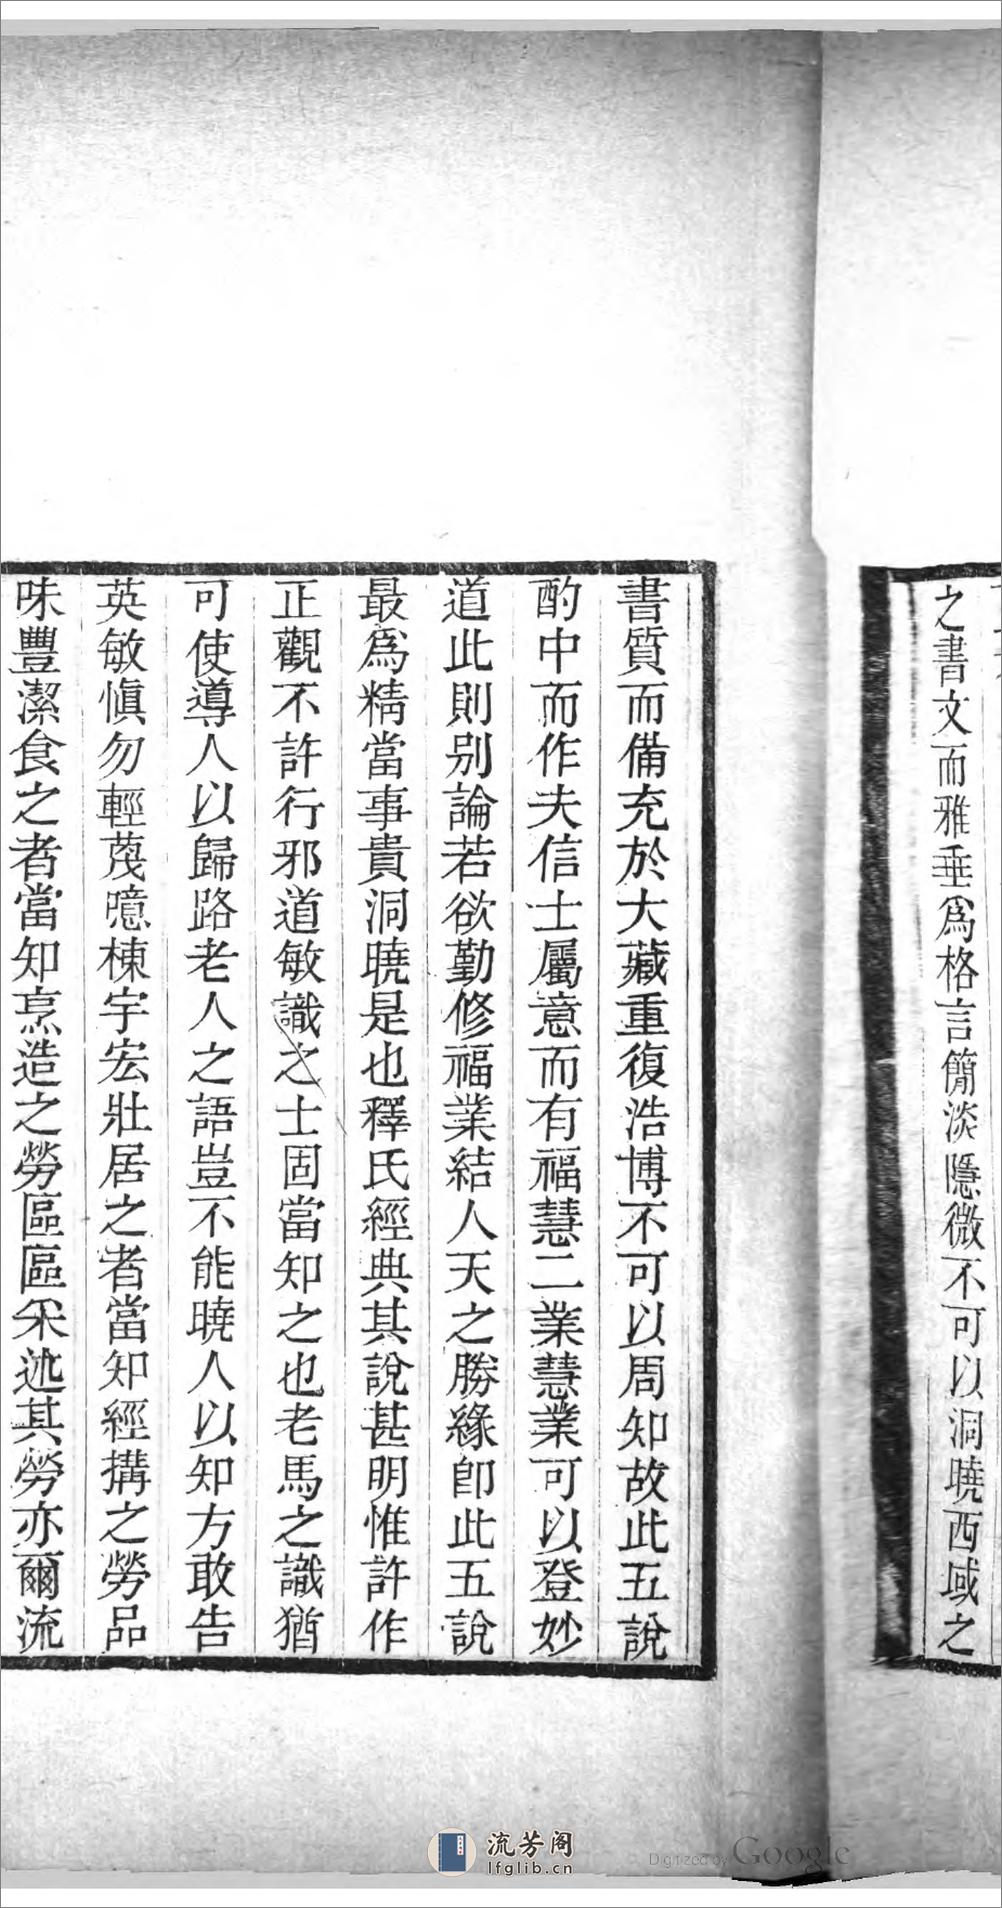 之書文而雅垂爲格言簡淡隱微不可以洞曉西域之
書質而備充於大藏重復浩博不可以周知故此五說
酌中而作夫信士屬意而有福慧二業慧業可以登妙
道此則别論若欲勤修福業結人天之勝緣卽此五說
最爲精當事貴洞曉是也釋氏經典其說甚明惟許作
正觀不許行邪道敏識之士固當知之也老馬之識猶
可使導人以歸路老人之語豈不能曉人以知方敢告
英敏愼勿輕蔑噫棟宇宏壯居之者當知經搆之勞品
味豐潔食之者當知烹造之勞區區采述其勞亦爾流
流芳阁
lfglib.cn
Digitized by Google